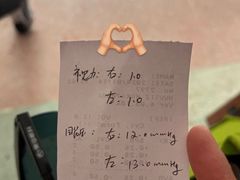 视力: 右: 1.0
左: 1.0
眼压: 右: 12.0 mmHg
左: 13.0 mmHg